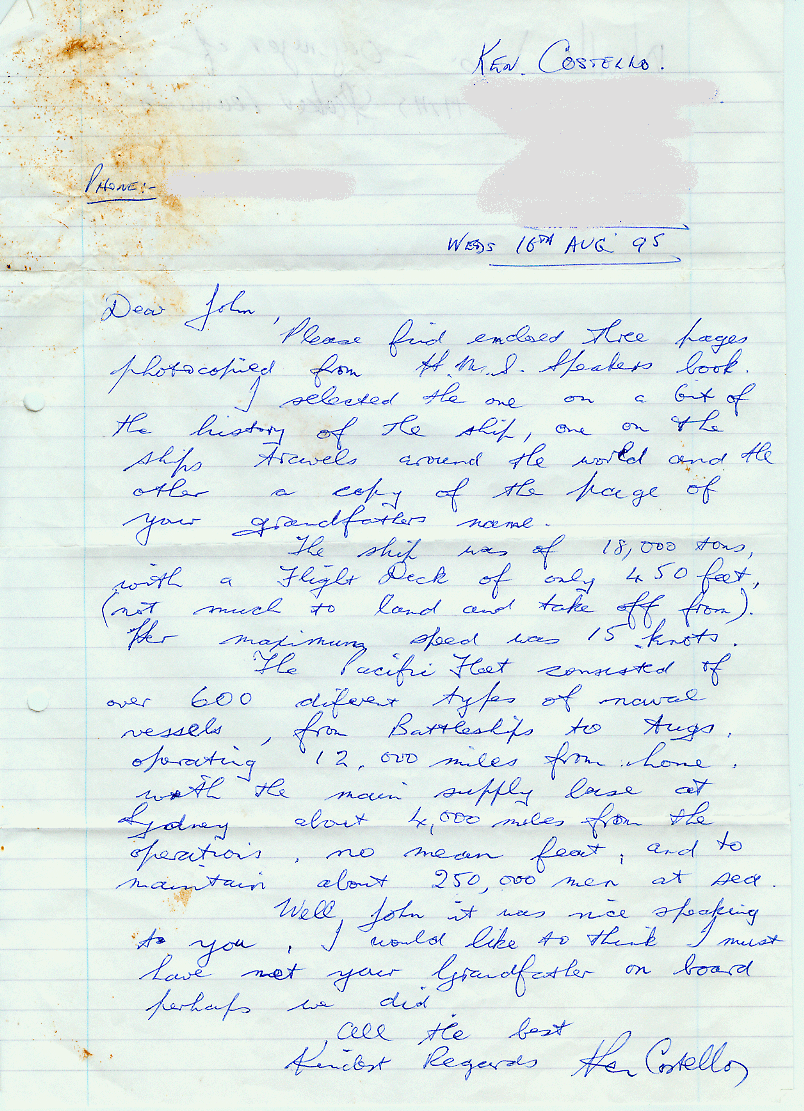 KEN. COSTELLO.
PHONE:-
WEDS 16TH AUG 95
Dear John,
Please find enclosed three pages
photocopied from H.M.S. Speakers book.
I selected the one on a bit of
the history of the ship, one on the
ships travels around the world and the
other a copy of the page of
your grandfathers name.
The ship was of 18,000 tons,
with a Flight Deck of only 450 feet,
(not much to land and take off from).
Her maximum speed was 15 knots.
The Pacific Fleet consisted of
over 600 different types of naval
vessels, from Battleships to tugs,
operating 12,000 miles from home.
with the main supply base at
Sydney about 4,000 miles from the
operations, no mean feat, and to
maintain about 250,000 men at sea.
Well, John it was nice speaking
to you, I would like to think I must
have met your Grandfather on board
perhaps we did.
All the best
Kindest Regards Ken Costello